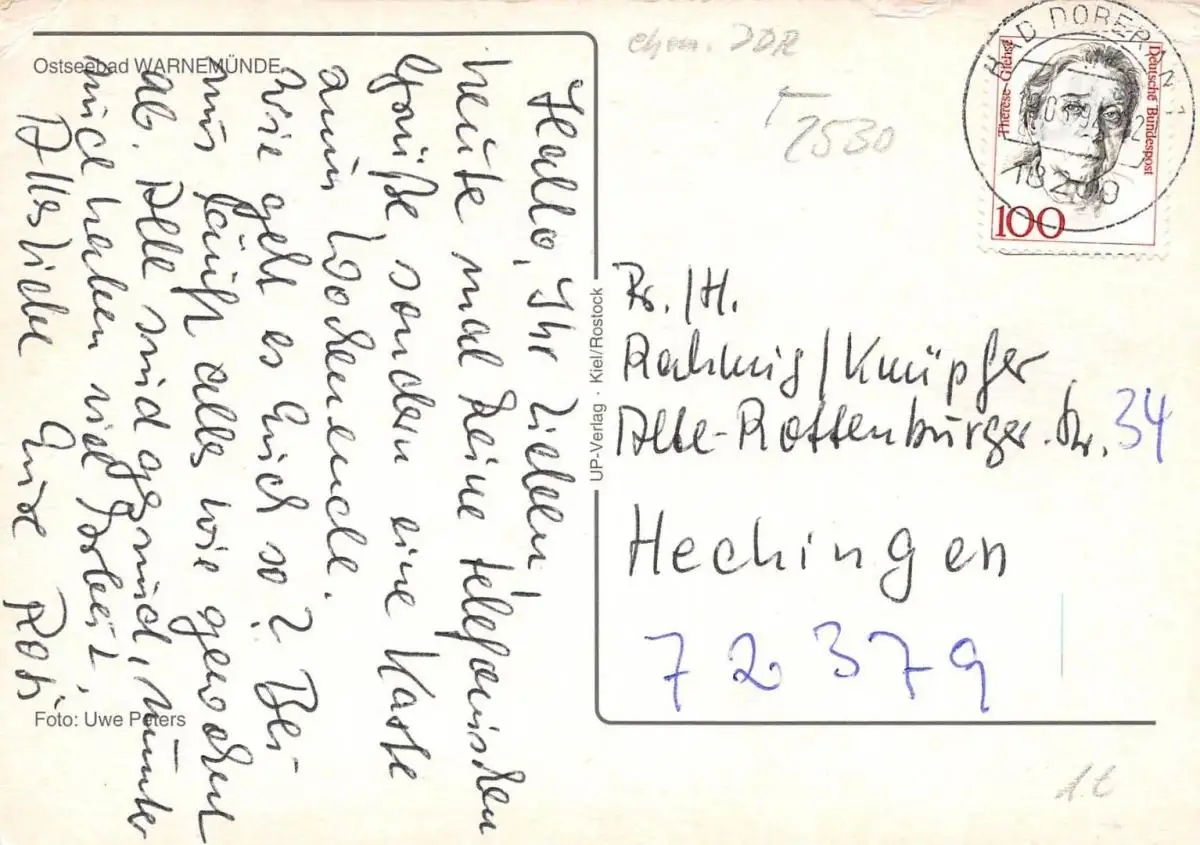 Ostseebad WARNEMÜNDE
Hallo, Ihr Lieben,
heute mal keine telefonischen
Grüße, sondern eine Karte
zum Wochenende.
Wie geht es Euch so? Bei
uns läuft alles wie gewohnt
ab. Alle sind gesund, munter
und haben viel Arbeit.
Alles Liebe Eure Rosi
Foto: Uwe Peters
UP-Verlag · Kiel/Rostock
ehem. DDR
2530
BAD DOBERAN 1
18209
Therese Giehse
Deutsche Bundespost
100
Fr./H.
Rahmig/Knüpfer
Alte-Rottenburger-Str. 34
Hechingen
72379